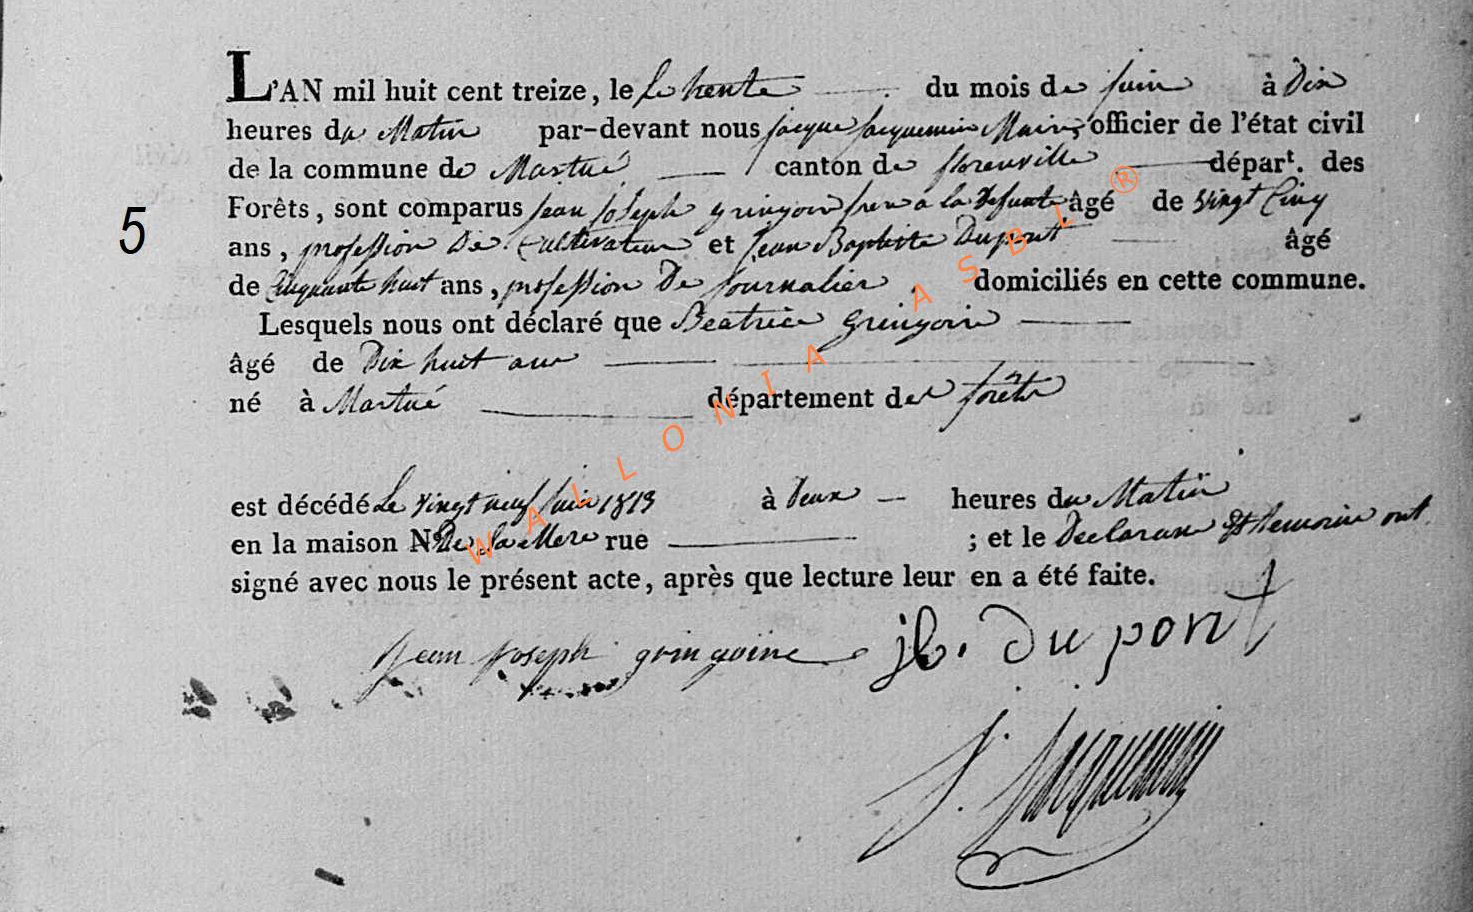 L'AN mil huit cent treize, le Le trente du mois de juin à Dix
heures du Matin par-devant nous jacque jacquemin Maire, officier de l'état civil
de la commune de Martué canton de florenville départ. des
Forêts, sont comparus jean joseph gringoire frere a la Defunte âgé de vingt Cinq
5
ans, profession De Cultivateur et Jean Baptiste Dupont âgé
de Cinquante huit ans, profession De Journalier, domiciliés en cette commune.
Lesquels nous ont déclaré que Beatrice Gringoire
âgé de Dix huit ans
né à Martué département des forêts
est décédé Le vingt neuf Juin 1813 à Deux heures du Matin
en la maison No De La Mere rue ; et le Declarans Et temoins ont
signé avec nous le présent acte, après que lecture leur en a été faite.
jean joseph gringoire jb. Dupont
J. Jacquemin
WALLONIA ASBL ®